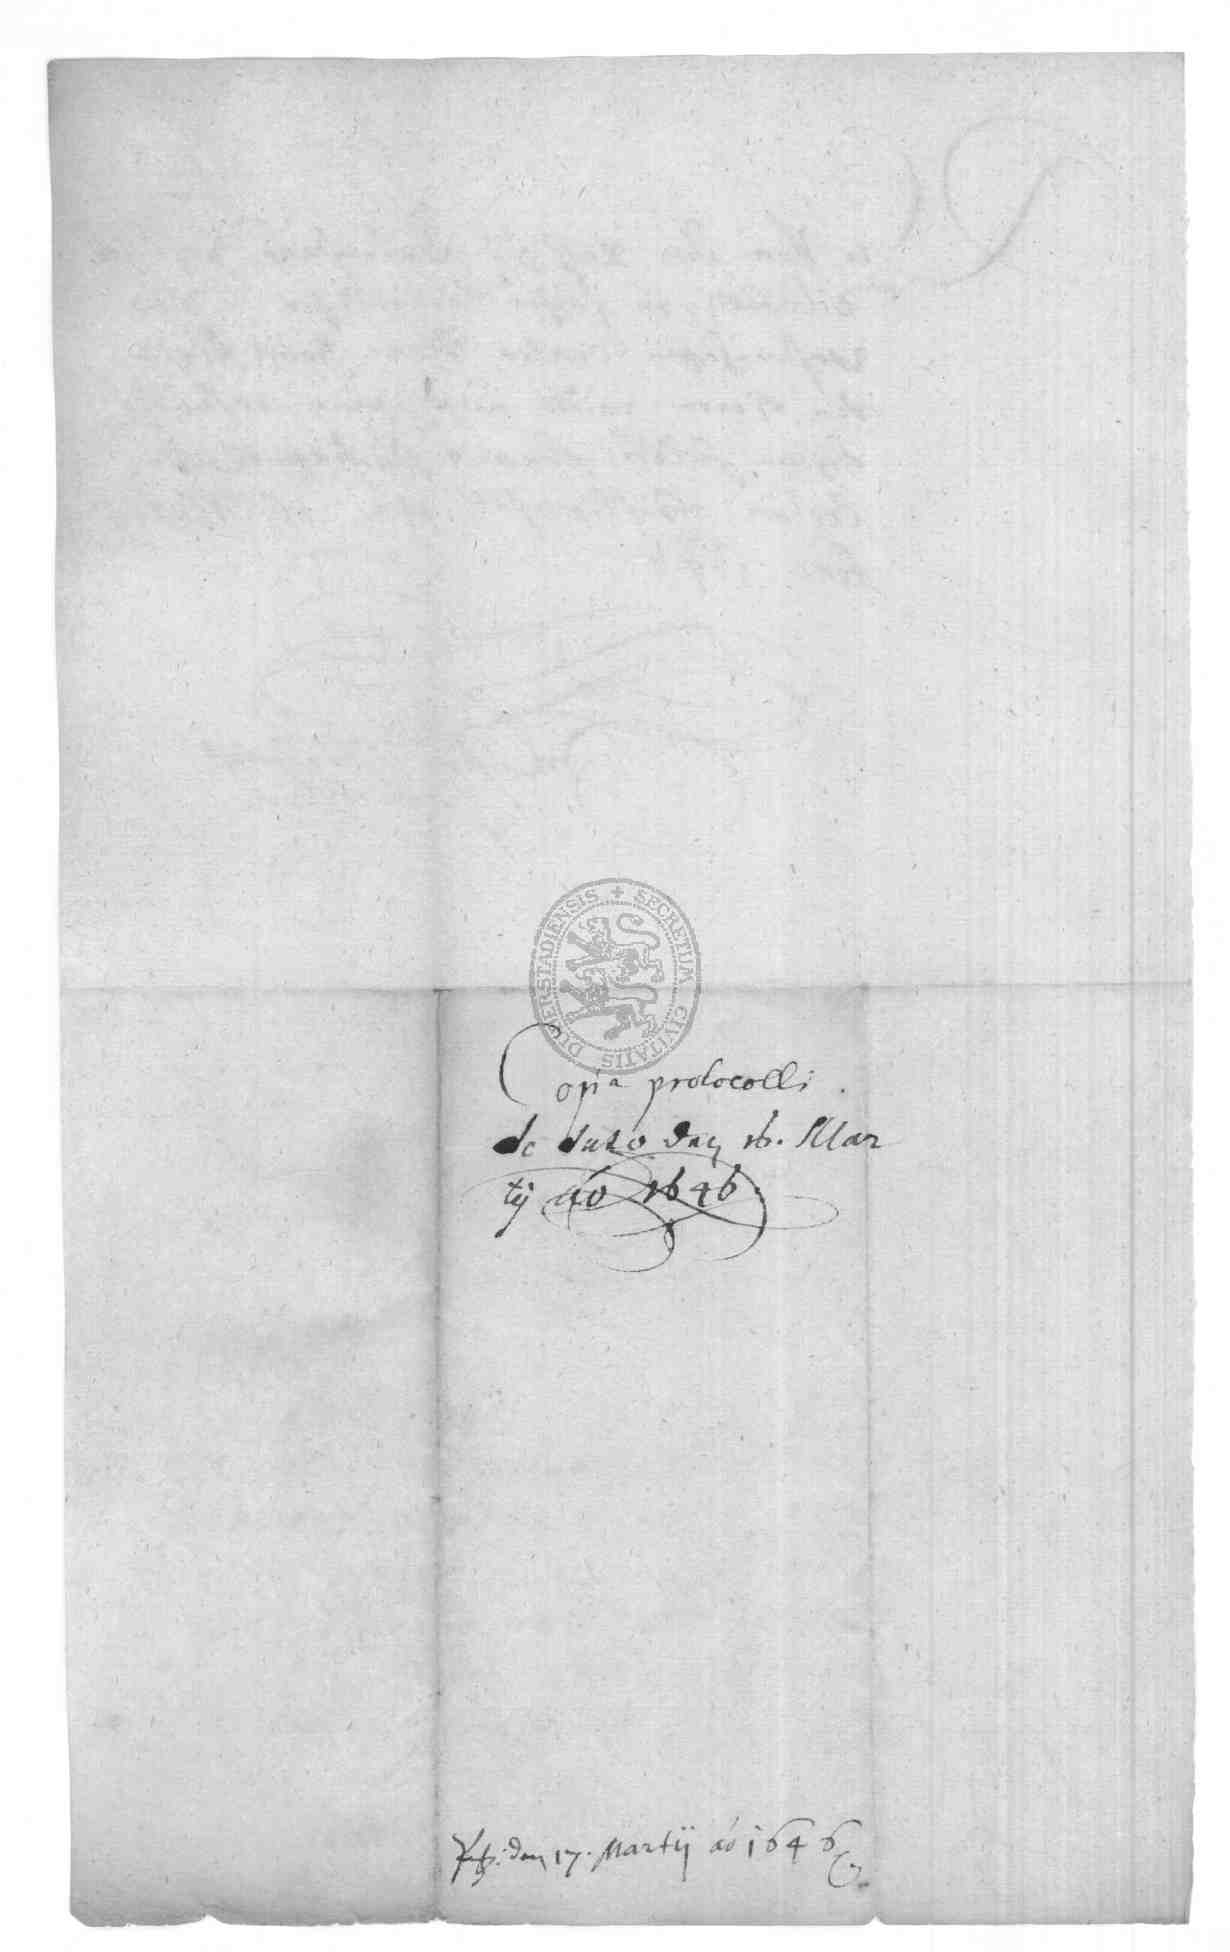 SECRETUM CIVITATIS DUDERSTADIENSIS
Copia protocolli
de dato den 16. Mar
tij ao 1646
den 17. Martij ao 1646